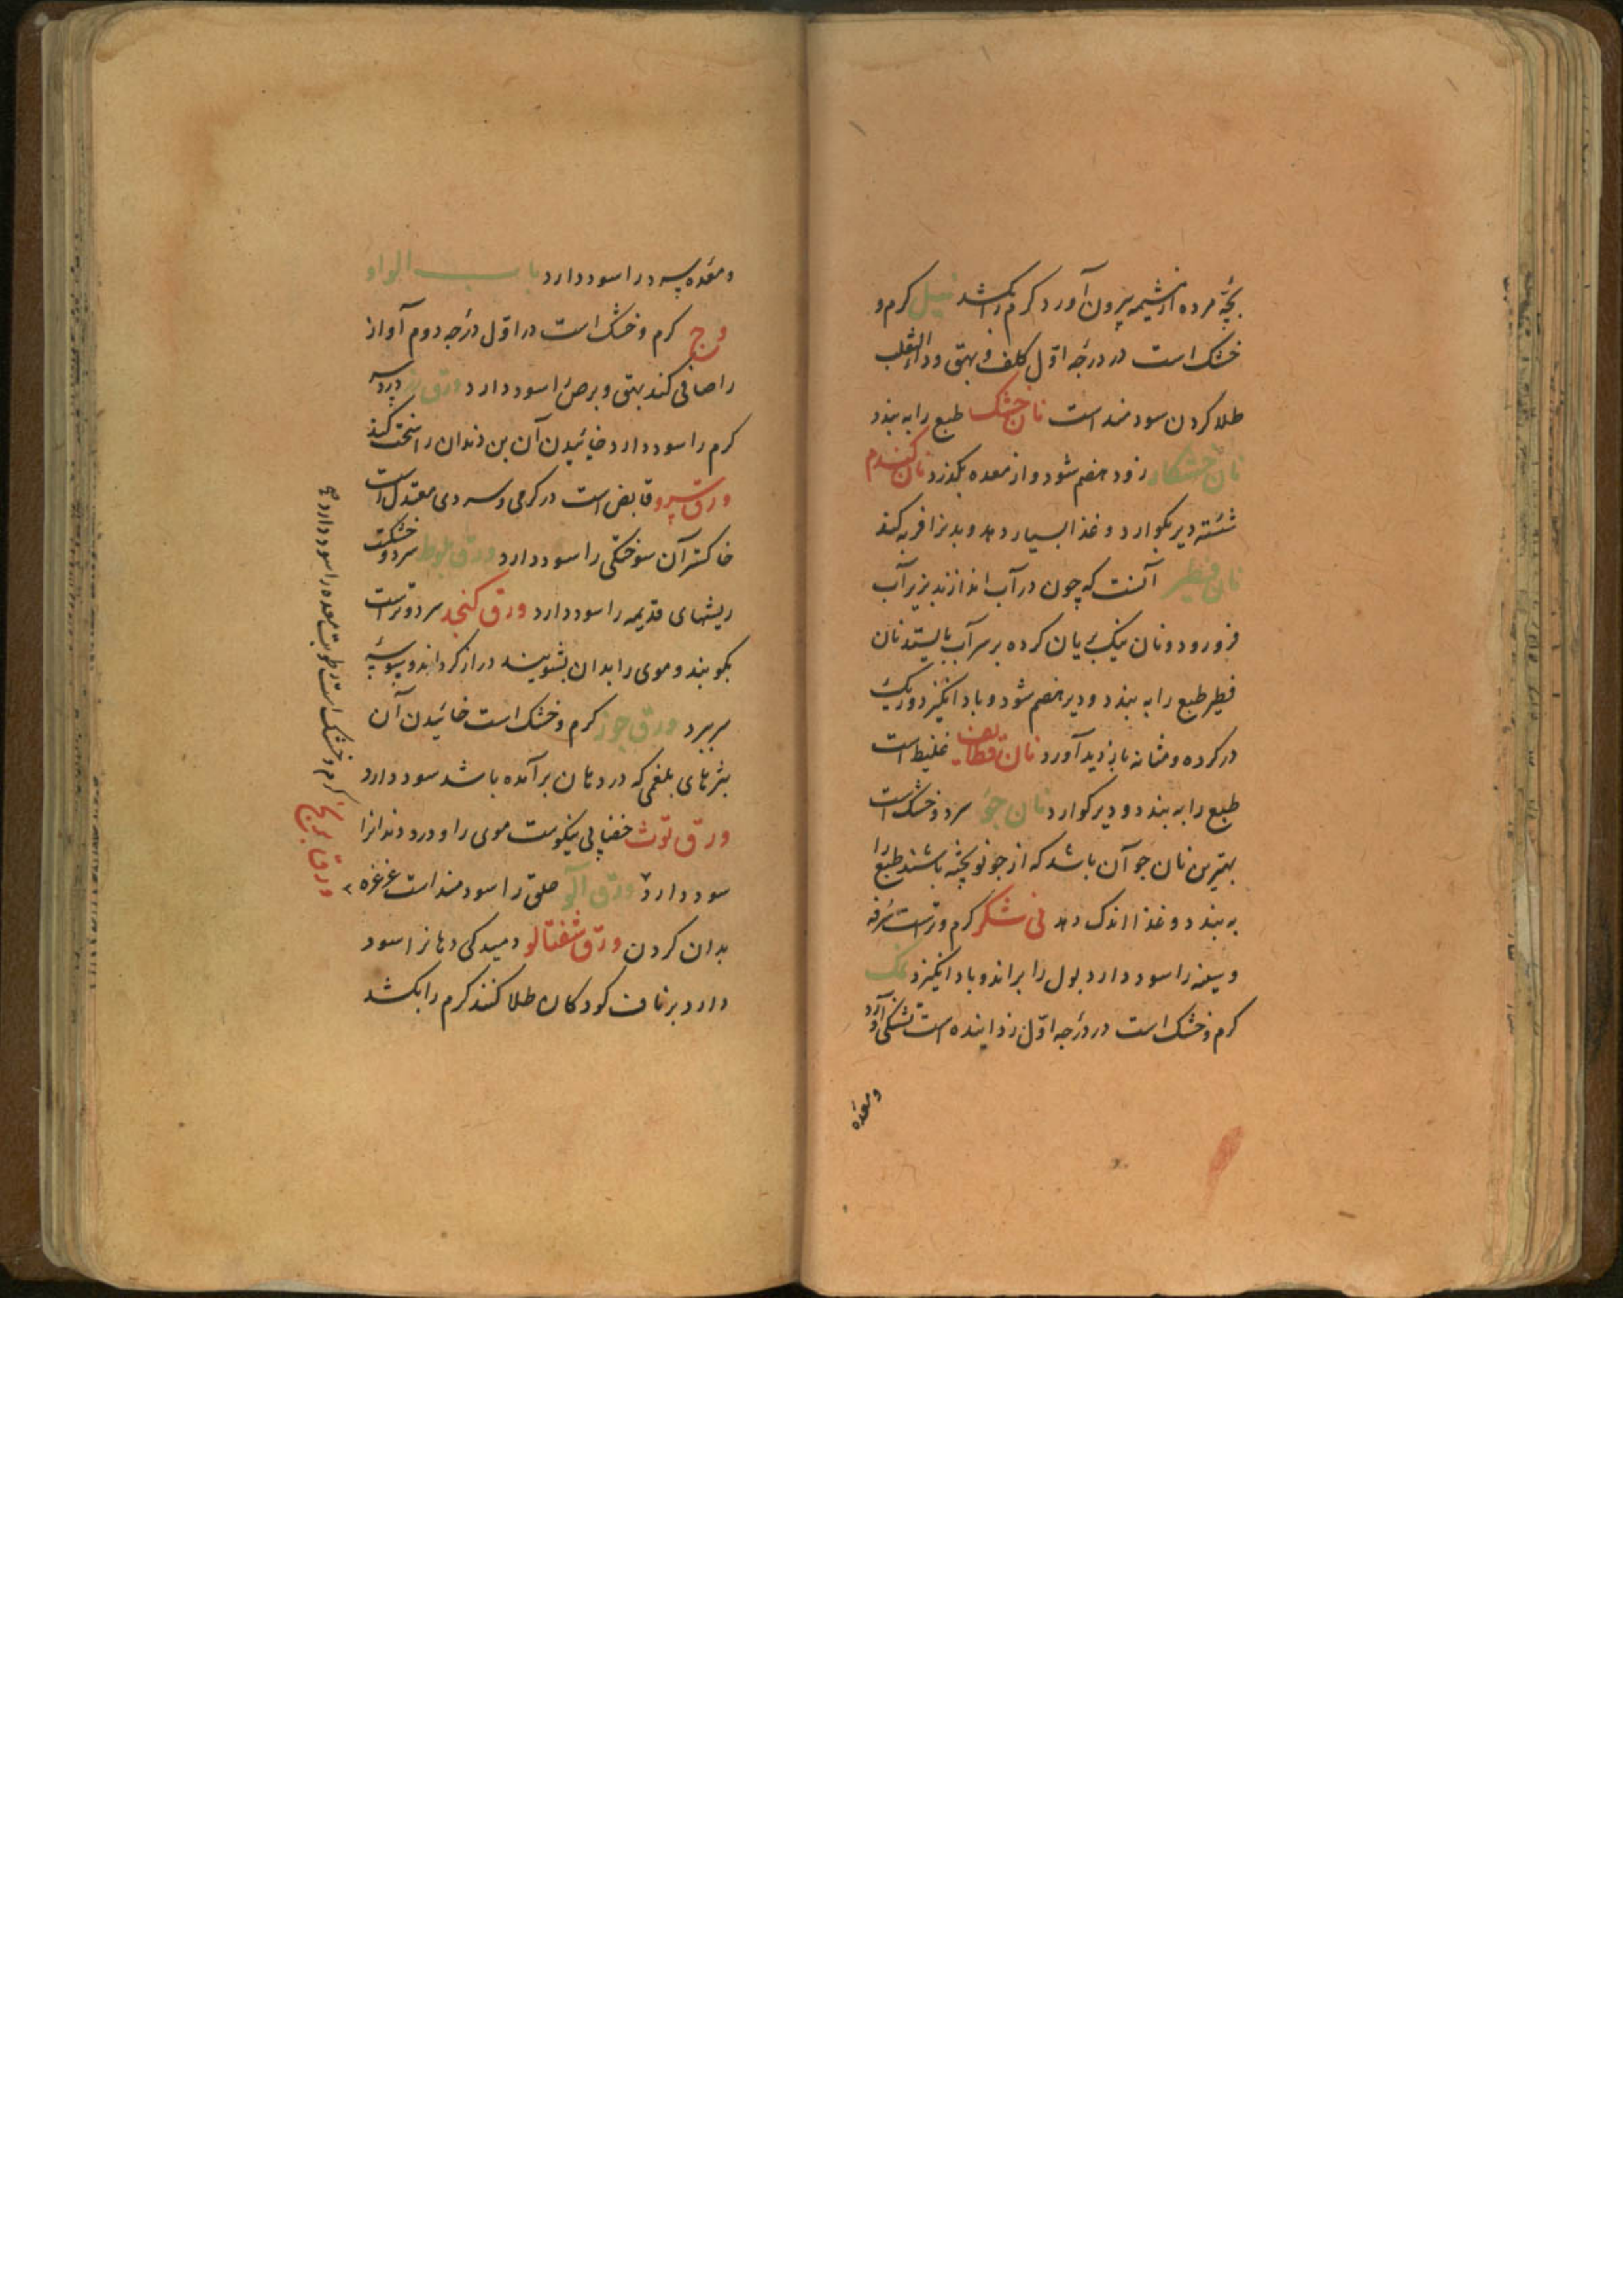 بچه مرده از مشیمه بیرون آورد کرم را بکشد نیل کرم و
خشک است در درجه اول کلف و بهق و داء الثعلب
طلا کردن سودمند است نان خشک طبع را به بندد
نان خشکار زود هضم شود و از معده بگذرد نان کندم
شسته دیر بکوارد و غذا بسیار دهد و بدنرا فربه کند
نان فطیر آنست که چون در آب اندازند بزیر آب
فرو رود و نان نیک بریان کرده بر سر آب بایستد نان
فطیر طبع را به بندد و دیر هضم شود و باد انکیزد و ریک
در کرده و مثانه پدید آورد نان قطایف غلیظ است
طبع را به بندد و دیر کوارد نان جو سرد و خشک است
بهترین نان جو آن باشد که از جو نو پخته باشند طبع را
به بندد و غذا اندک دهد نی شکر کرم و ترست سرفه
و سینه را سود دارد بول را براند و باد انکیزد نمک
کرم و خشک است در درجه اول زداینده است تشنکی آورد
ومعده
ومعده سرد را سود دارد باب الواو
وج کرم و خشک است در اول درجه دوم آواز
را صافی کند بهق و برص را سود دارد ورق درد سر
کرم را سود دارد خائیدن آن بن دندان را سخت کند
ورق سرو قابض است در کرمی و سردی معتدل است
خاکستر آن سوختکی را سود دارد ورق بلوط سرد و خشکست
ریشهای قدیمه را سود دارد ورق کنجد سرد و ترست
بکوبند و موی را بدان بشویند دراز کرداند و سبوسه
سر ببرد ورق جوز کرم و خشک است خائیدن آن
بثرهای بلغمی که در دهان برآمده باشد سود دارد
ورق توث خضابی نیکوست موی را و درد دندانرا
سود دارد ورق آلو حلق را سودمند است غرغره
بدان کردن ورق شفتالو دمیدکی دهانرا سود
دارد بر ناف کودکان طلا کنند کرم را بکشد
ورق کرم و خشک است رطوبت معده را سود دارد